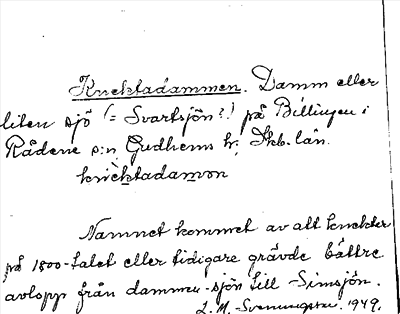 Knektadammen. Damm eller
liten sjö (= Svartsjön?) på Billingen i
Rådene s:n Gudhems h: Skb. län.
knèktadamən
Namnet kommet av att knekter
på 1800-talet eller tidigare grävde bättre
avlopp från dammen-sjön till Simsjön.
L. M. Svenungsson. 1949.